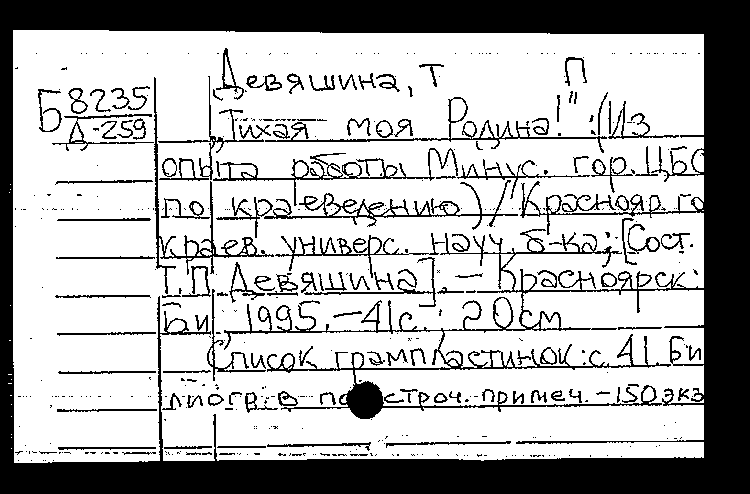 Девяшина, Т П
Б 8235
Д-259
„Тихая моя Родина!" :(Из
опыта работы Минус. гор. ЦБС
по краеведению) / Краснояр. го
краев. универс. науч. б-ка; [Сост.
Т.П. Девяшина]. – Красноярск:
Би 1995. – 41с.; 20см
Список грампластинок: с. 41. Би
лиогр. в по строч. примеч. – 150 экз